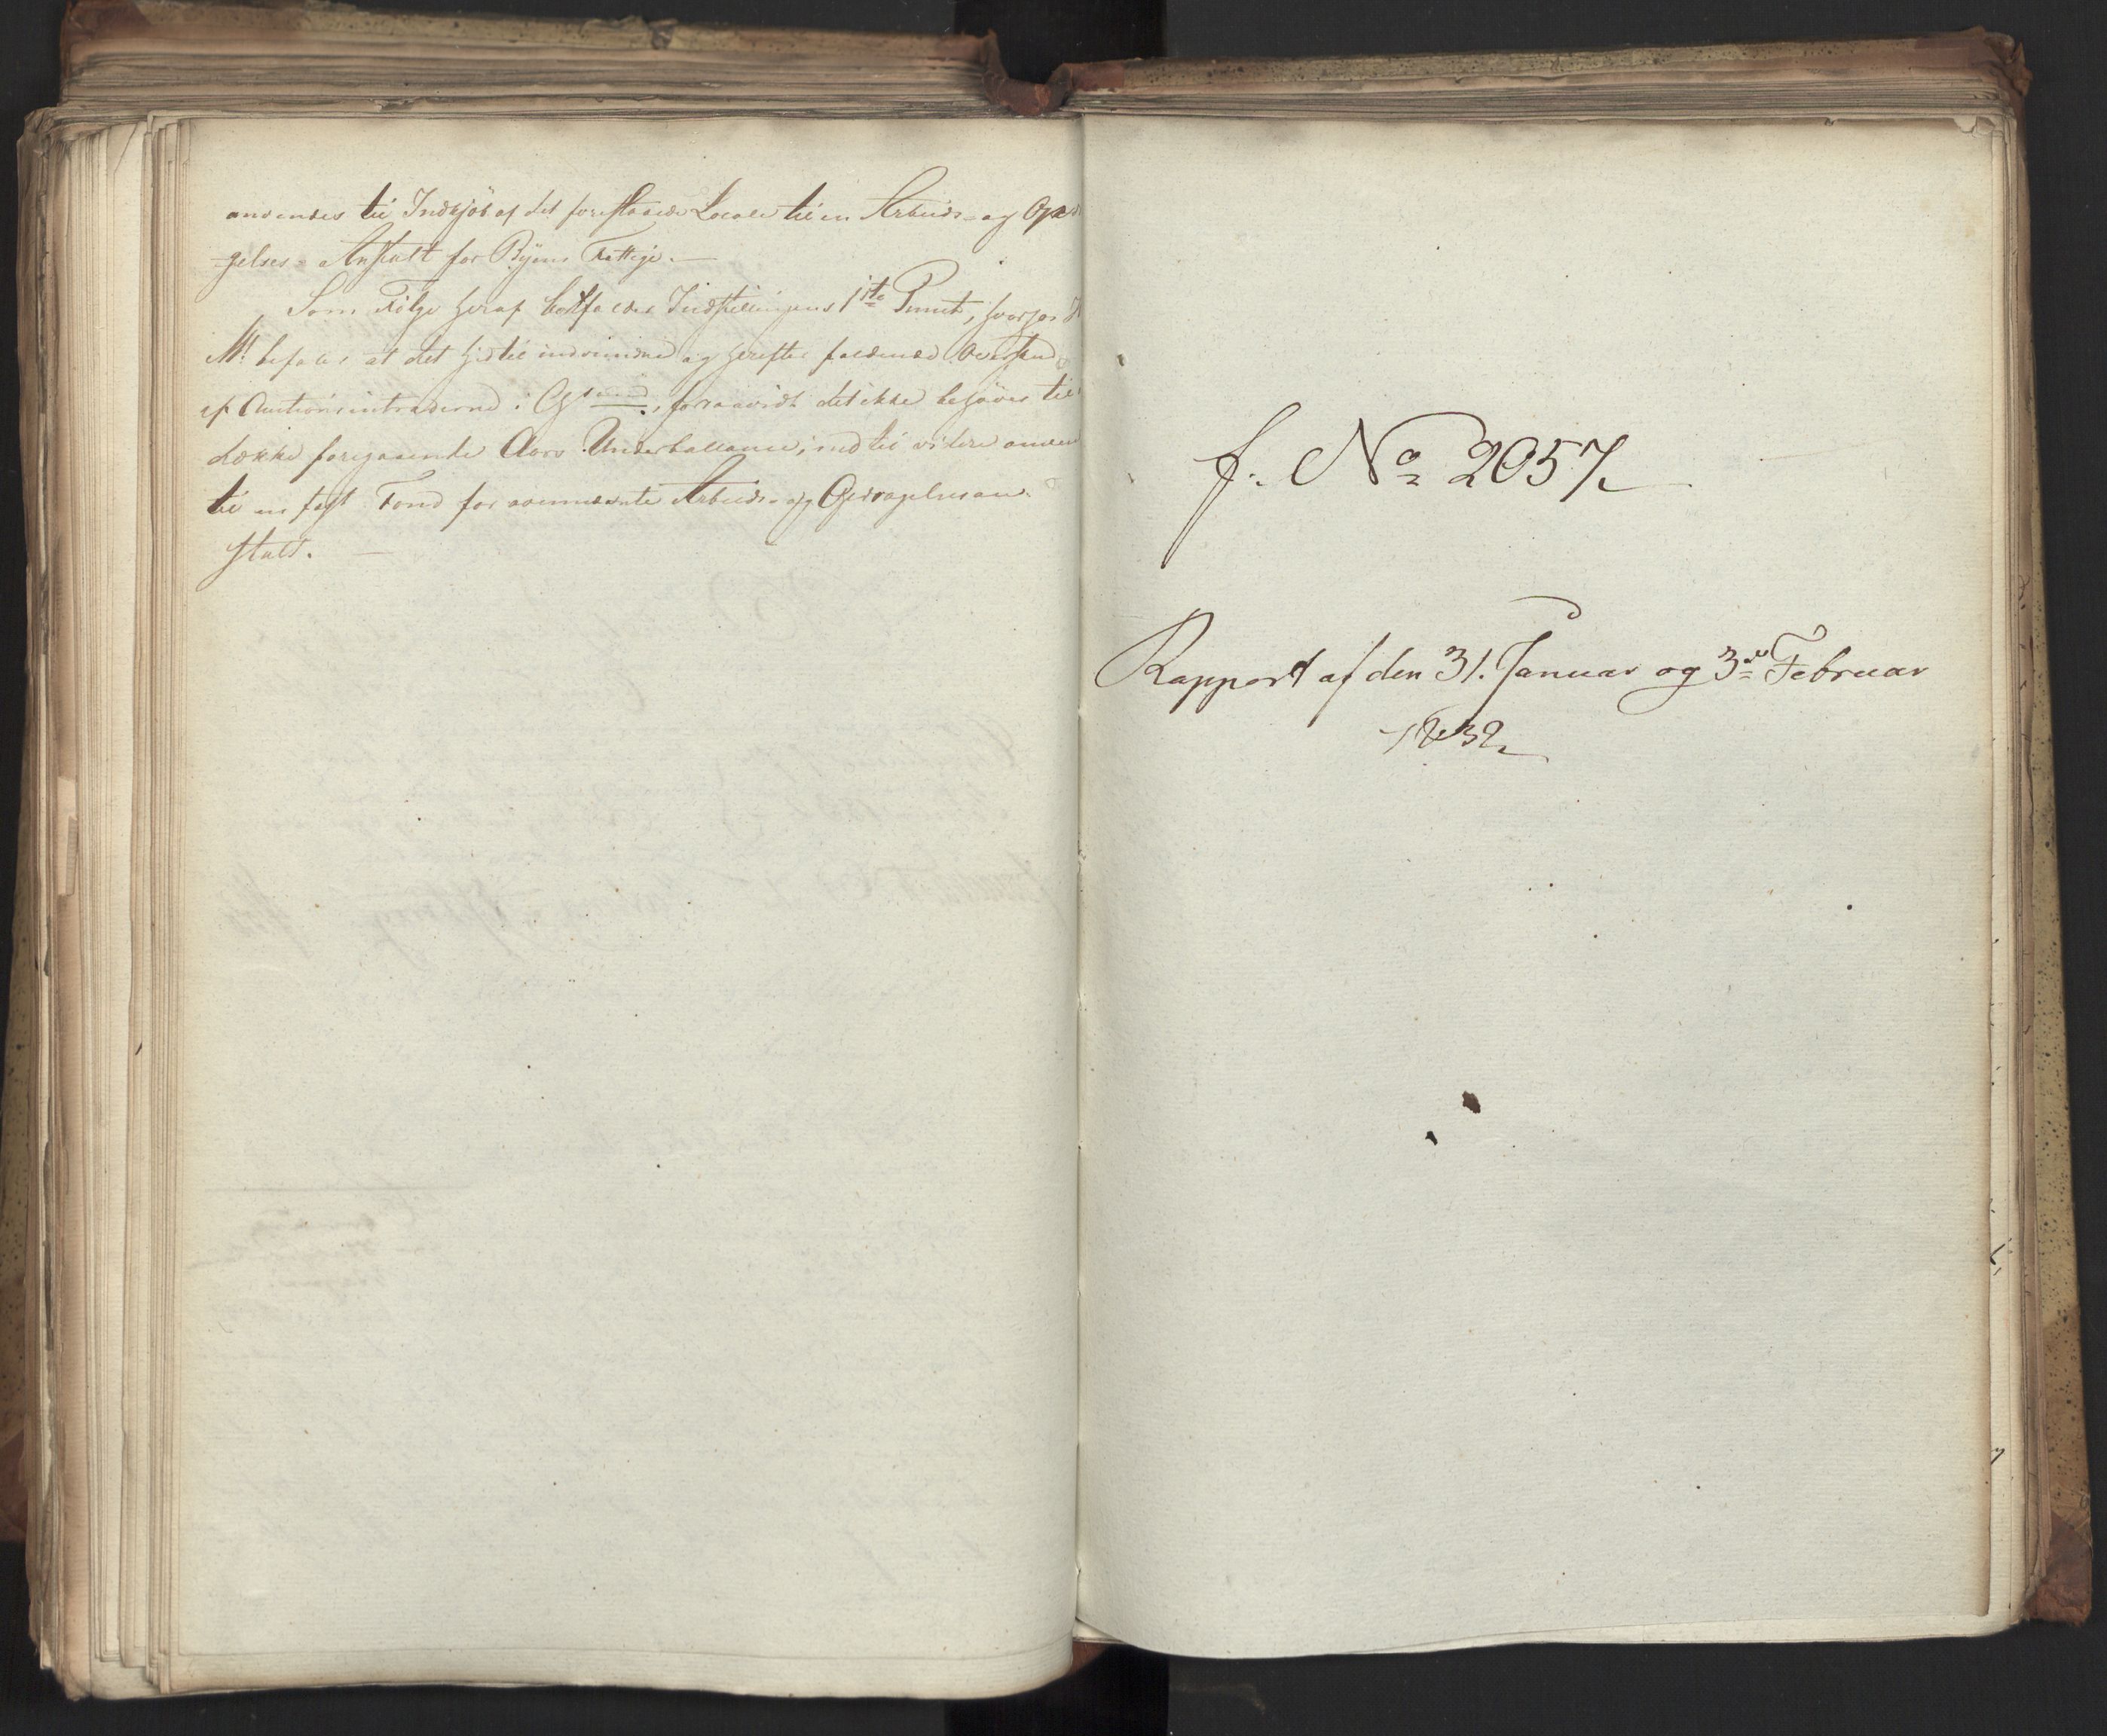 anvendes til Indkjöb af det foreslaaede Locale til en Arbeids- og Opdra
gelses-Anstalt for Byens Fattige. —
Som Fölge heraf bortfalder Indstillingens 1ste Punct, hvorfor
Mt befales at det hidtil indvundne og herefter faldende Overskud
af Auctionsintraderne i, forsaavidt det ikke behöves til
dække foregaaende Aars Underballance, indtil videre anven
til en fast Fond for ovennævnte Arbeids- og Opdragelsesan-
stalt. —
f. No 2057
Rapport af den 31. Januar og 3die Februar
1832